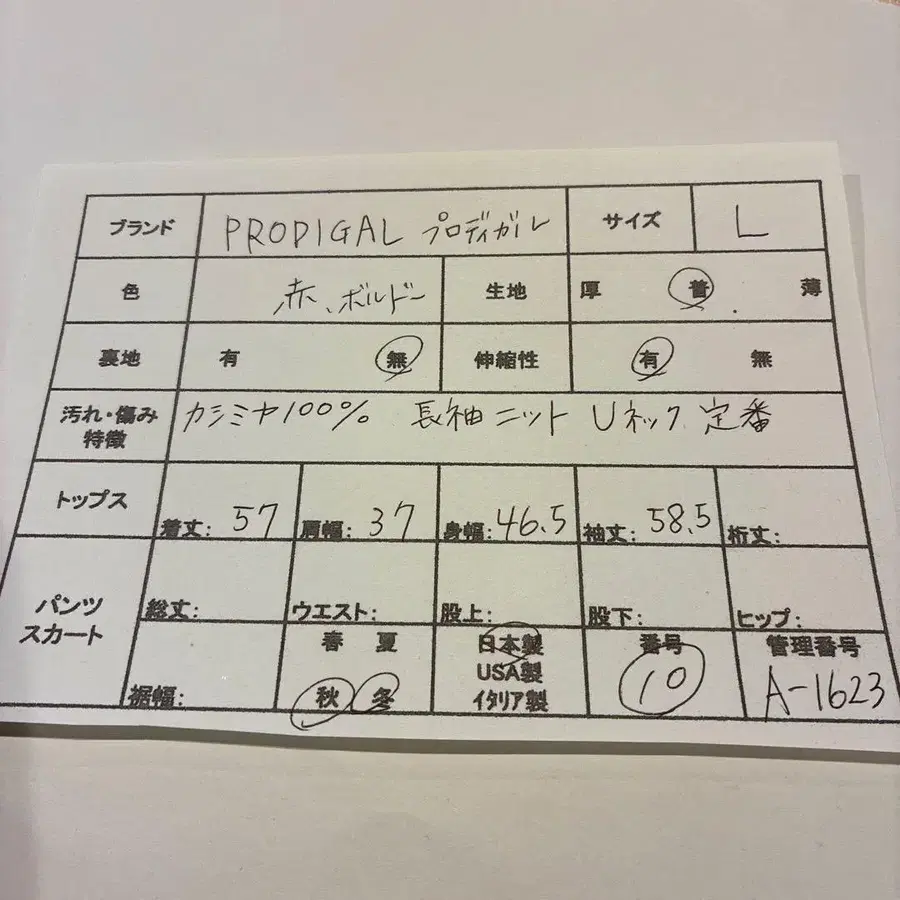 ブランド PRODIGAL プロディガル サイズ L
色 赤、ボルドー 生地 厚 普 薄
裏地 有 無 伸縮性 有 無
汚れ・傷み カシミヤ100% 長袖ニット Uネック 定番
特徴
トップス 着丈: 57 肩幅: 37 身幅: 46.5 袖丈: 58.5 裄丈:
パンツ
スカート
総丈: ウエスト: 股上: 股下: ヒップ:
裾幅:
春 夏
秋 冬
日本製
USA製
イタリア製
番号
10
管理番号
A-1623